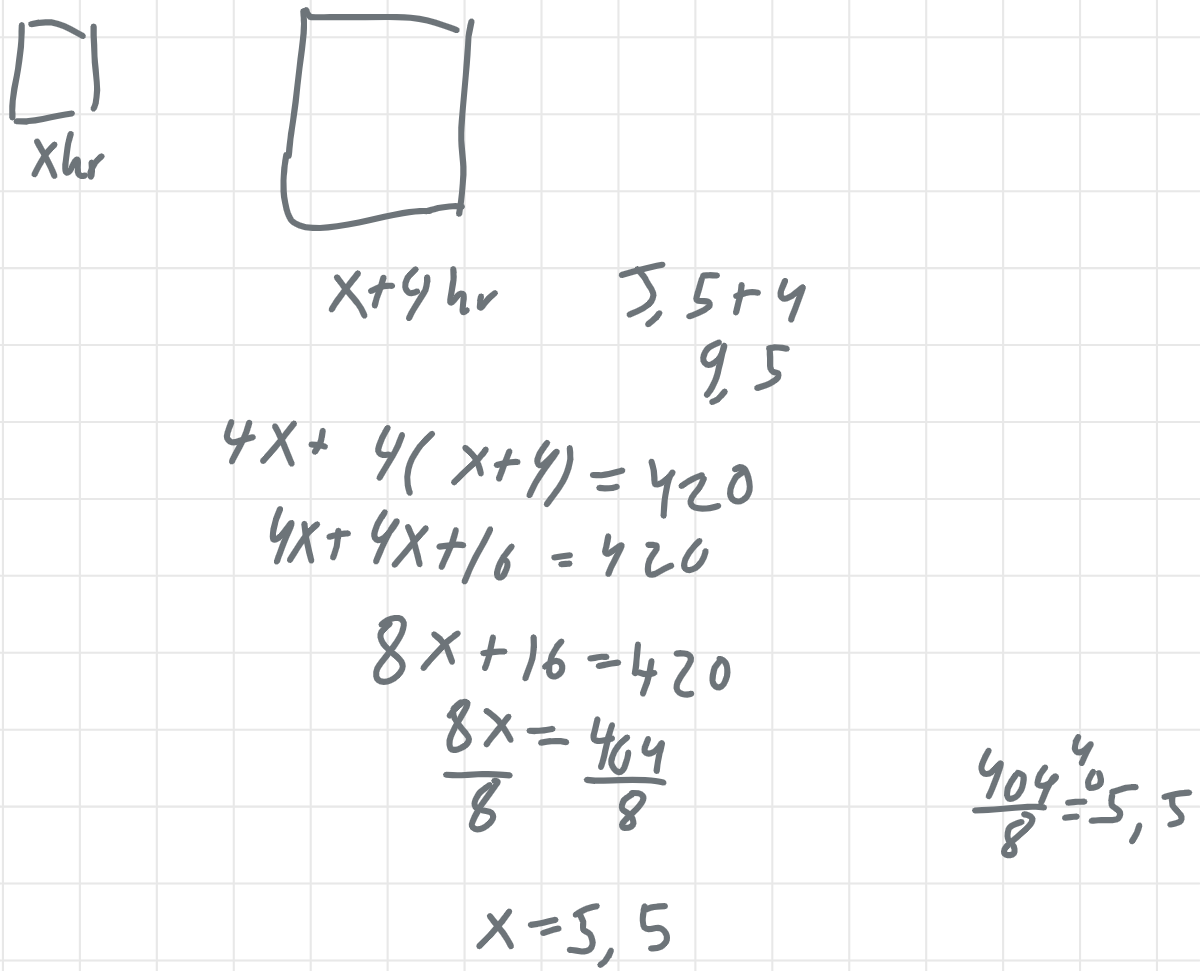 xhr
x+4hr
5,5+4
9,5
4x+ 4(x+4)=420
4x+4x+16=420
8x+16=420
8x=404
8 8
404/8=5,5
40
x=5,5